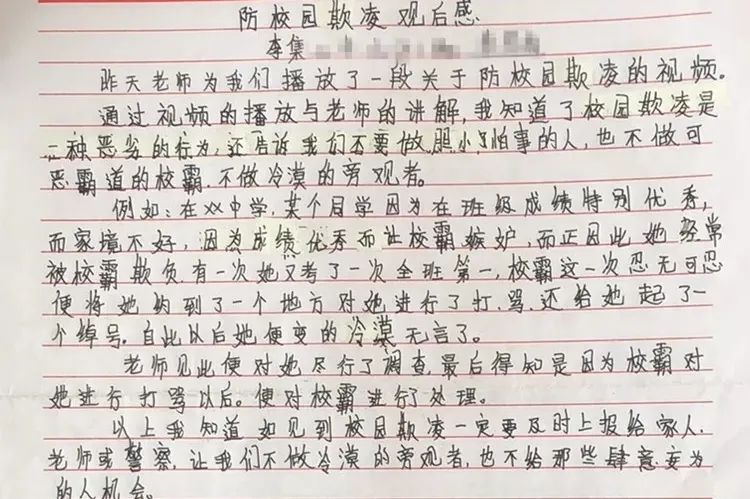 防校园欺凌观后感
李集
昨天老师为我们播放了一段关于防校园欺凌的视频。
通过视频的播放与老师的讲解,我知道了校园欺凌是
一种恶劣的行为,还告诉我们不要做胆小怕事的人,也不做可
恶霸道的校霸,不做冷漠的旁观者。
例如:在XX中学,某个同学因为在班级成绩特别优秀,
而家境不好,因为成绩优秀而让校霸嫉妒,而正因此她经常
被校霸欺负,有一次她又考了一次全班第一,校霸这一次忍无可忍
便将她约到了一个地方对她进行了打、骂,还给她起了一
个绰号,自此以后她便变的冷漠无言了。
老师见此便对她尽行了调查,最后得知是因为校霸对
她进行打骂以后。便对校霸进行了处理。
以上我知道如见到校园欺凌一定要及时上报给家人、
老师或警察,让我们不做冷漠的旁观者,也不给那些肆意妄为
的人机会。